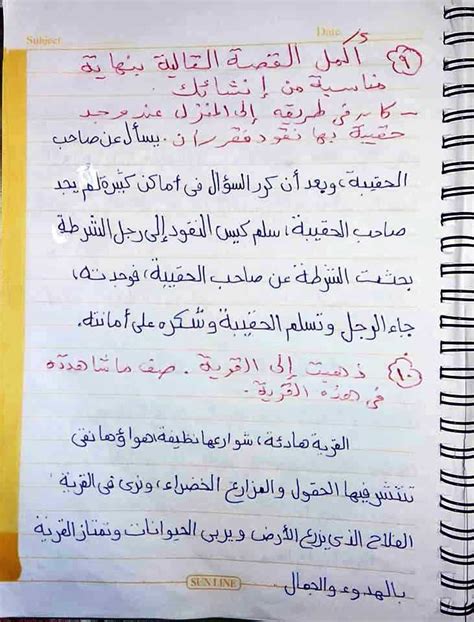 Subject
Date
٩ أكمل القصة التالية بنهاية
مناسبة من إنشائك
- كان فى طريقه إلى المنزل عندما وجد
حقيبة بها نقود فقرر أن. يسأل عن صاحب
الحقيبة، وبعد أن كرر السؤال فى أماكن كثيرة لم يجد
صاحب الحقيبة، سلم كيس النقود إلى رجل الشرطة
بحثت الشرطة عن صاحب الحقيبة، فوجدته،
جاء الرجل وتسلم الحقيبة وشكره على أمانته.
١٠ ذهبت إلى القرية. صف ما شاهدته
فى هذه القرية.
القرية هادئة، شوارعها نظيفة هواؤها نقى
تنتشر فيها الحقول والمزارع الخضراء، ونرى فى القرية
الفلاح الذى يزرع الأرض ويربى الحيوانات وتمتاز القرية
بالهدوء والجمال
SUN LINE